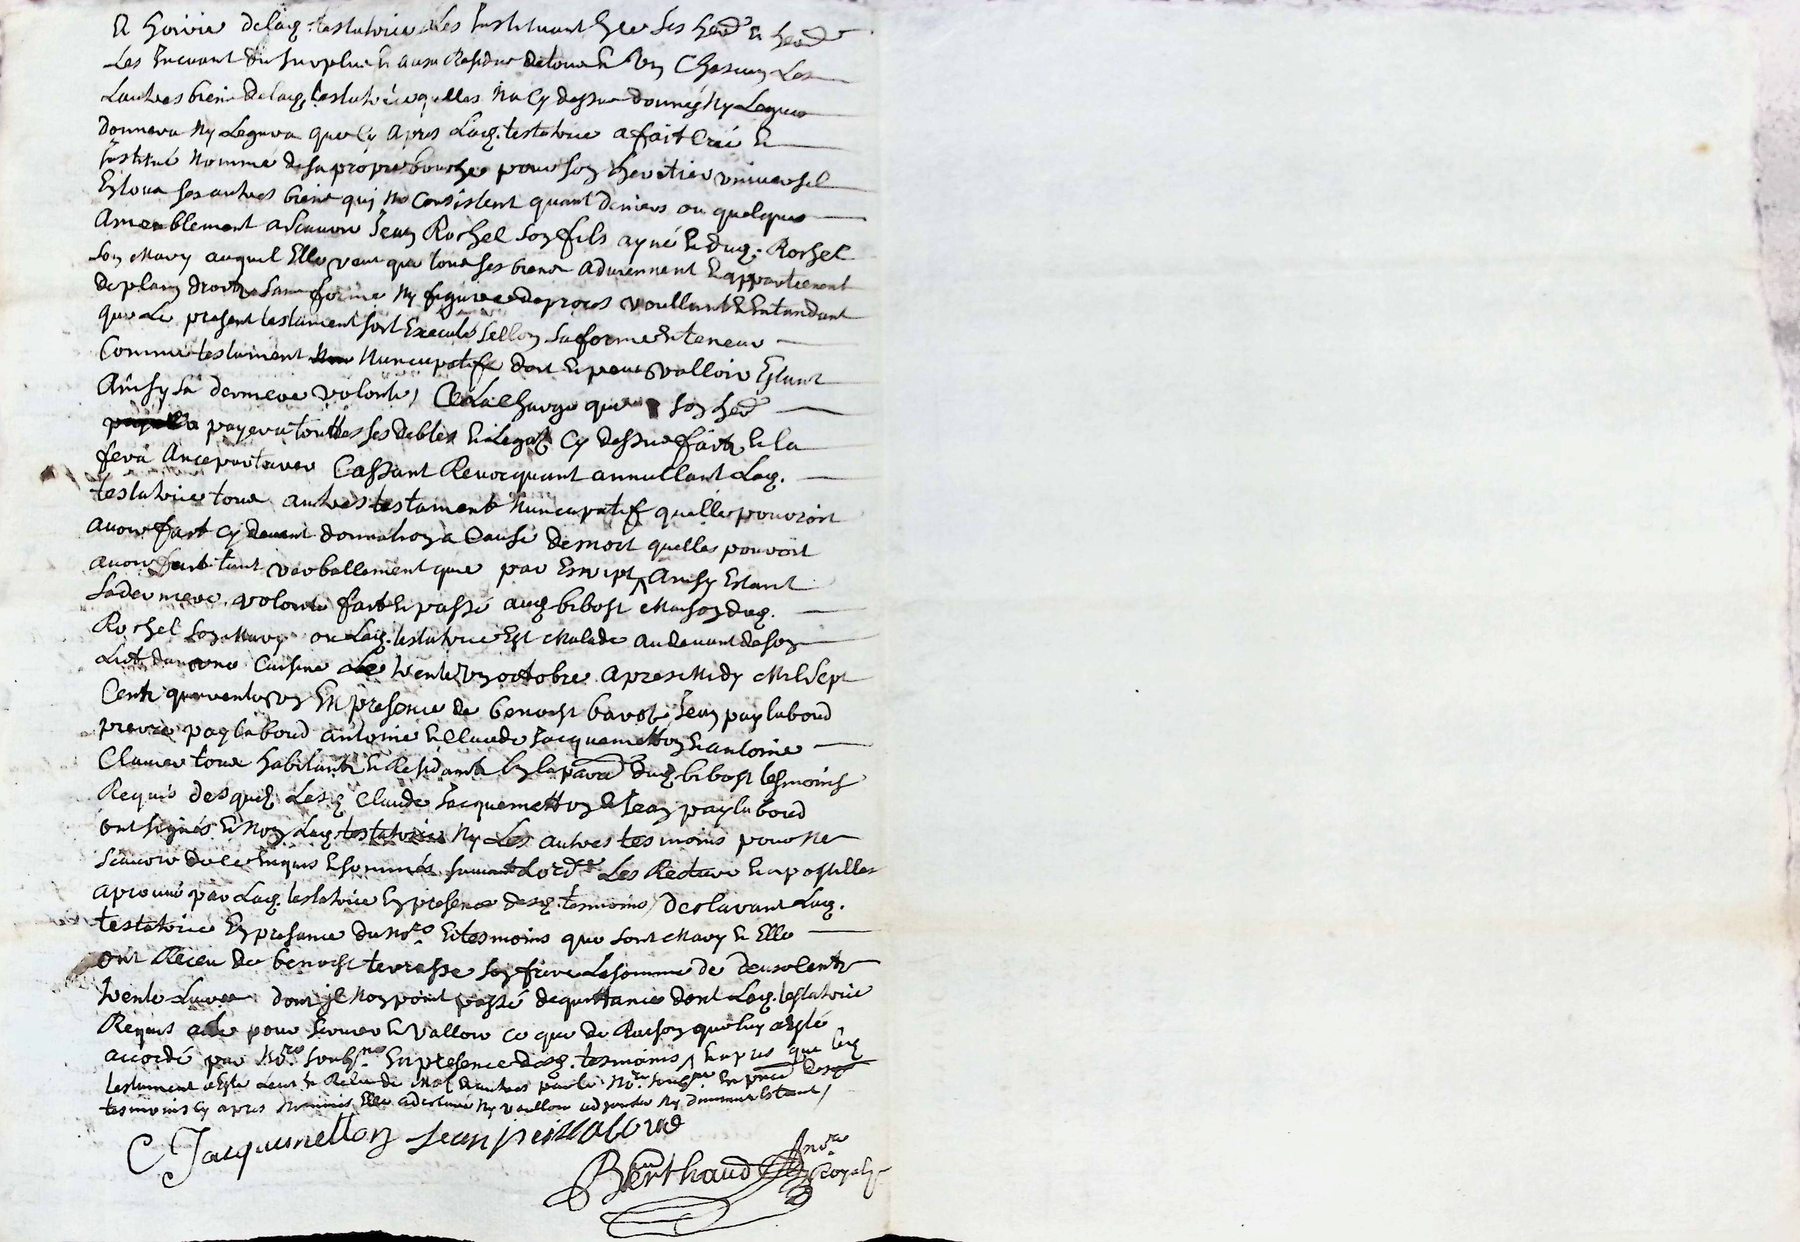 et hoirie de lad. testatrice les instituant her ses herd. et herd.
Les Incuant du surplus et au residue de tous et un Chascun Les
Lautres biens de lad. testatrice quelles na cy dessus donnés ny Legues
donnera ny Leguera que cy apres Lad. testatrice a fait Créé et
Institué nommé de sa propre bouche pour son heritier universel
En tous ses autres biens qui ne Consistent quant deniers ou quelques
Ameublement a scauoir Jean Rochel son fils ayné et dud. Rochel
son Mary auquel Elle veut que tous ses biens aduiennent et appartienent
de plain droit sans forme ny figure de proces voullant et Entandant
que Le present testament soit Executé sellon sa forme et teneur
Comme testament nuncupatif dont et peut valloir Estant
Ainsy sa derniere volonté, Et à la Charge que son herd.
payera touttes ses debtes et Legats cy dessus faits et la
fera Cassant Reuocquant annullant Lad.
testatrice tous autres testament nuncupatif quelle pouroit
auoir fait cy deuant donnation a Cause de mort quelles pouvoit
auoir fait tant verballement que par Escript Ainsy Estant
sa derniere volonté fait et passé aud. bibost Maison dud.
Rochel son Mary ou Lad. testatrice Est Malade au deuant de son
Lict dans une Cuisine Le trente un octobre apres Midy Mil sept
Cents quarente un En presence de benoist Jean paylaboud
pierre paylaboud antoine et Claude Jacquemetton et antoine
tous habitants et Residants En la parr. dud. bibost tesmoins
Requis desquels Les d. Claude Jacquemetton et Jean paylaboud
ont signés et non Lad. testatrice ny Les autres tesmoins pour ne
scauoir de ce Enquis et sommés suiuant Lord. Les Rature et apostilles
aprouué par Lad. testatrice En presence desd. tesmoins, declarant Lad.
testatrice En presance du no.re et tesmoins que sont Mary et Elle
ont Receu de benoist terresse son frere La somme de deux Cents
trente Liures dont il non point passé de quittance dont Lad. testatrice
Requis acte pour seruir et valloir ce que de Raison que luy a Esté
accordé par no.re soubs.né En presence desd. tesmoins, et apres que led.
testament a Esté Leut et Releu de Mot par le no.re En pnce desd.
tesmoins cy apres nommés Elle a declaré ny voulloir adjouter ny diminuer
C Jacquemetton Jean peillaboud
Berthaud no.re Royal